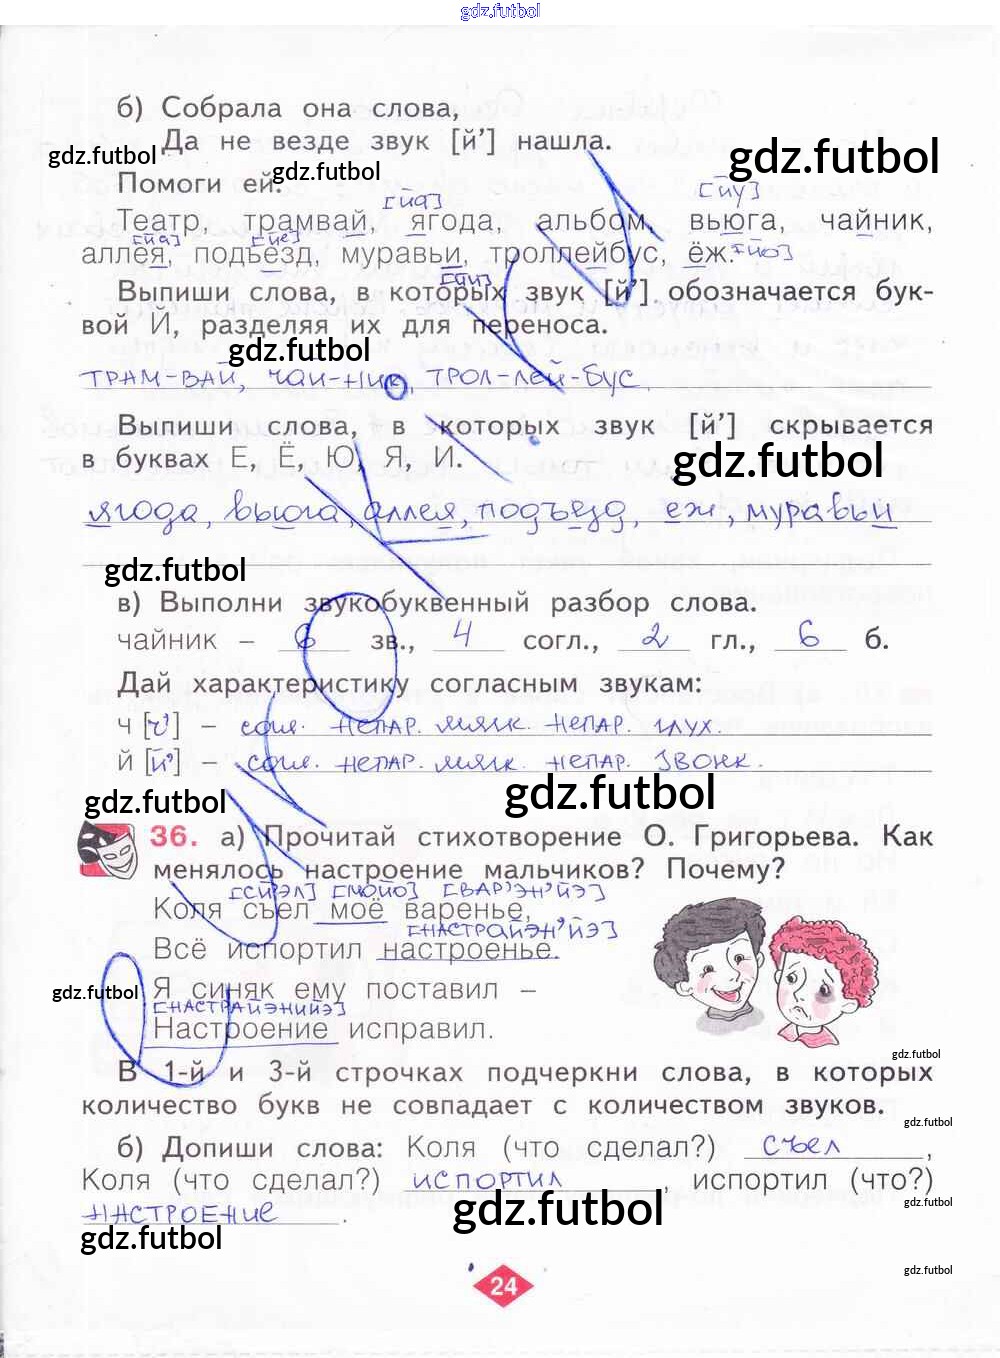 gdz.futbol
б) Собрала она слова,
Да не везде звук [й’] нашла.
gdz.futbol
gdz.futbol
gdz.futbol
Помоги ей.
[йа] [йу]
Театр, трамвай, ягода, альбом, вьюга, чайник,
[йа] [йе] [йо]
аллея, подъезд, муравьи, троллейбус, ёж.
[йи]
Выпиши слова, в которых звук [й’] обозначается бук-
вой Й, разделяя их для переноса.
gdz.futbol
ТРАМ-ВАЙ, ЧАЙ-НИК, ТРОЛ-ЛЕЙ-БУС.
Выпиши слова, в которых звук [й’] скрывается
в буквах Е, Ё, Ю, Я, И.
gdz.futbol
ягода, вьюга, аллея, подъезд, еж, муравьи
gdz.futbol
в) Выполни звукобуквенный разбор слова.
чайник – 6 зв., 4 согл., 2 гл., 6 б.
Дай характеристику согласным звукам:
ч [ч’] – согл. НЕПАР. мягк. НЕПАР. глух.
й [й’] – согл. НЕПАР. мягк. НЕПАР. ЗВОНК.
gdz.futbol
gdz.futbol
36. а) Прочитай стихотворение О. Григорьева. Как
менялось настроение мальчиков? Почему?
[СЙЭЛ] [МОЙО] [ВАР’ЭН’ЙЭ]
Коля съел моё варенье,
[НАСТРАЙЭН’ЙЭ]
Всё испортил настроенье.
gdz.futbol
Я синяк ему поставил –
[НАСТРАЙЭНИЙЭ]
Настроение исправил.
gdz.futbol
В 1-й и 3-й строчках подчеркни слова, в которых
количество букв не совпадает с количеством звуков.
gdz.futbol
б) Допиши слова: Коля (что сделал?) СЪЕЛ,
Коля (что сделал?) ИСПОРТИЛ, испортил (что?)
gdz.futbol
НАСТРОЕНИЕ.
gdz.futbol
gdz.futbol
gdz.futbol
24